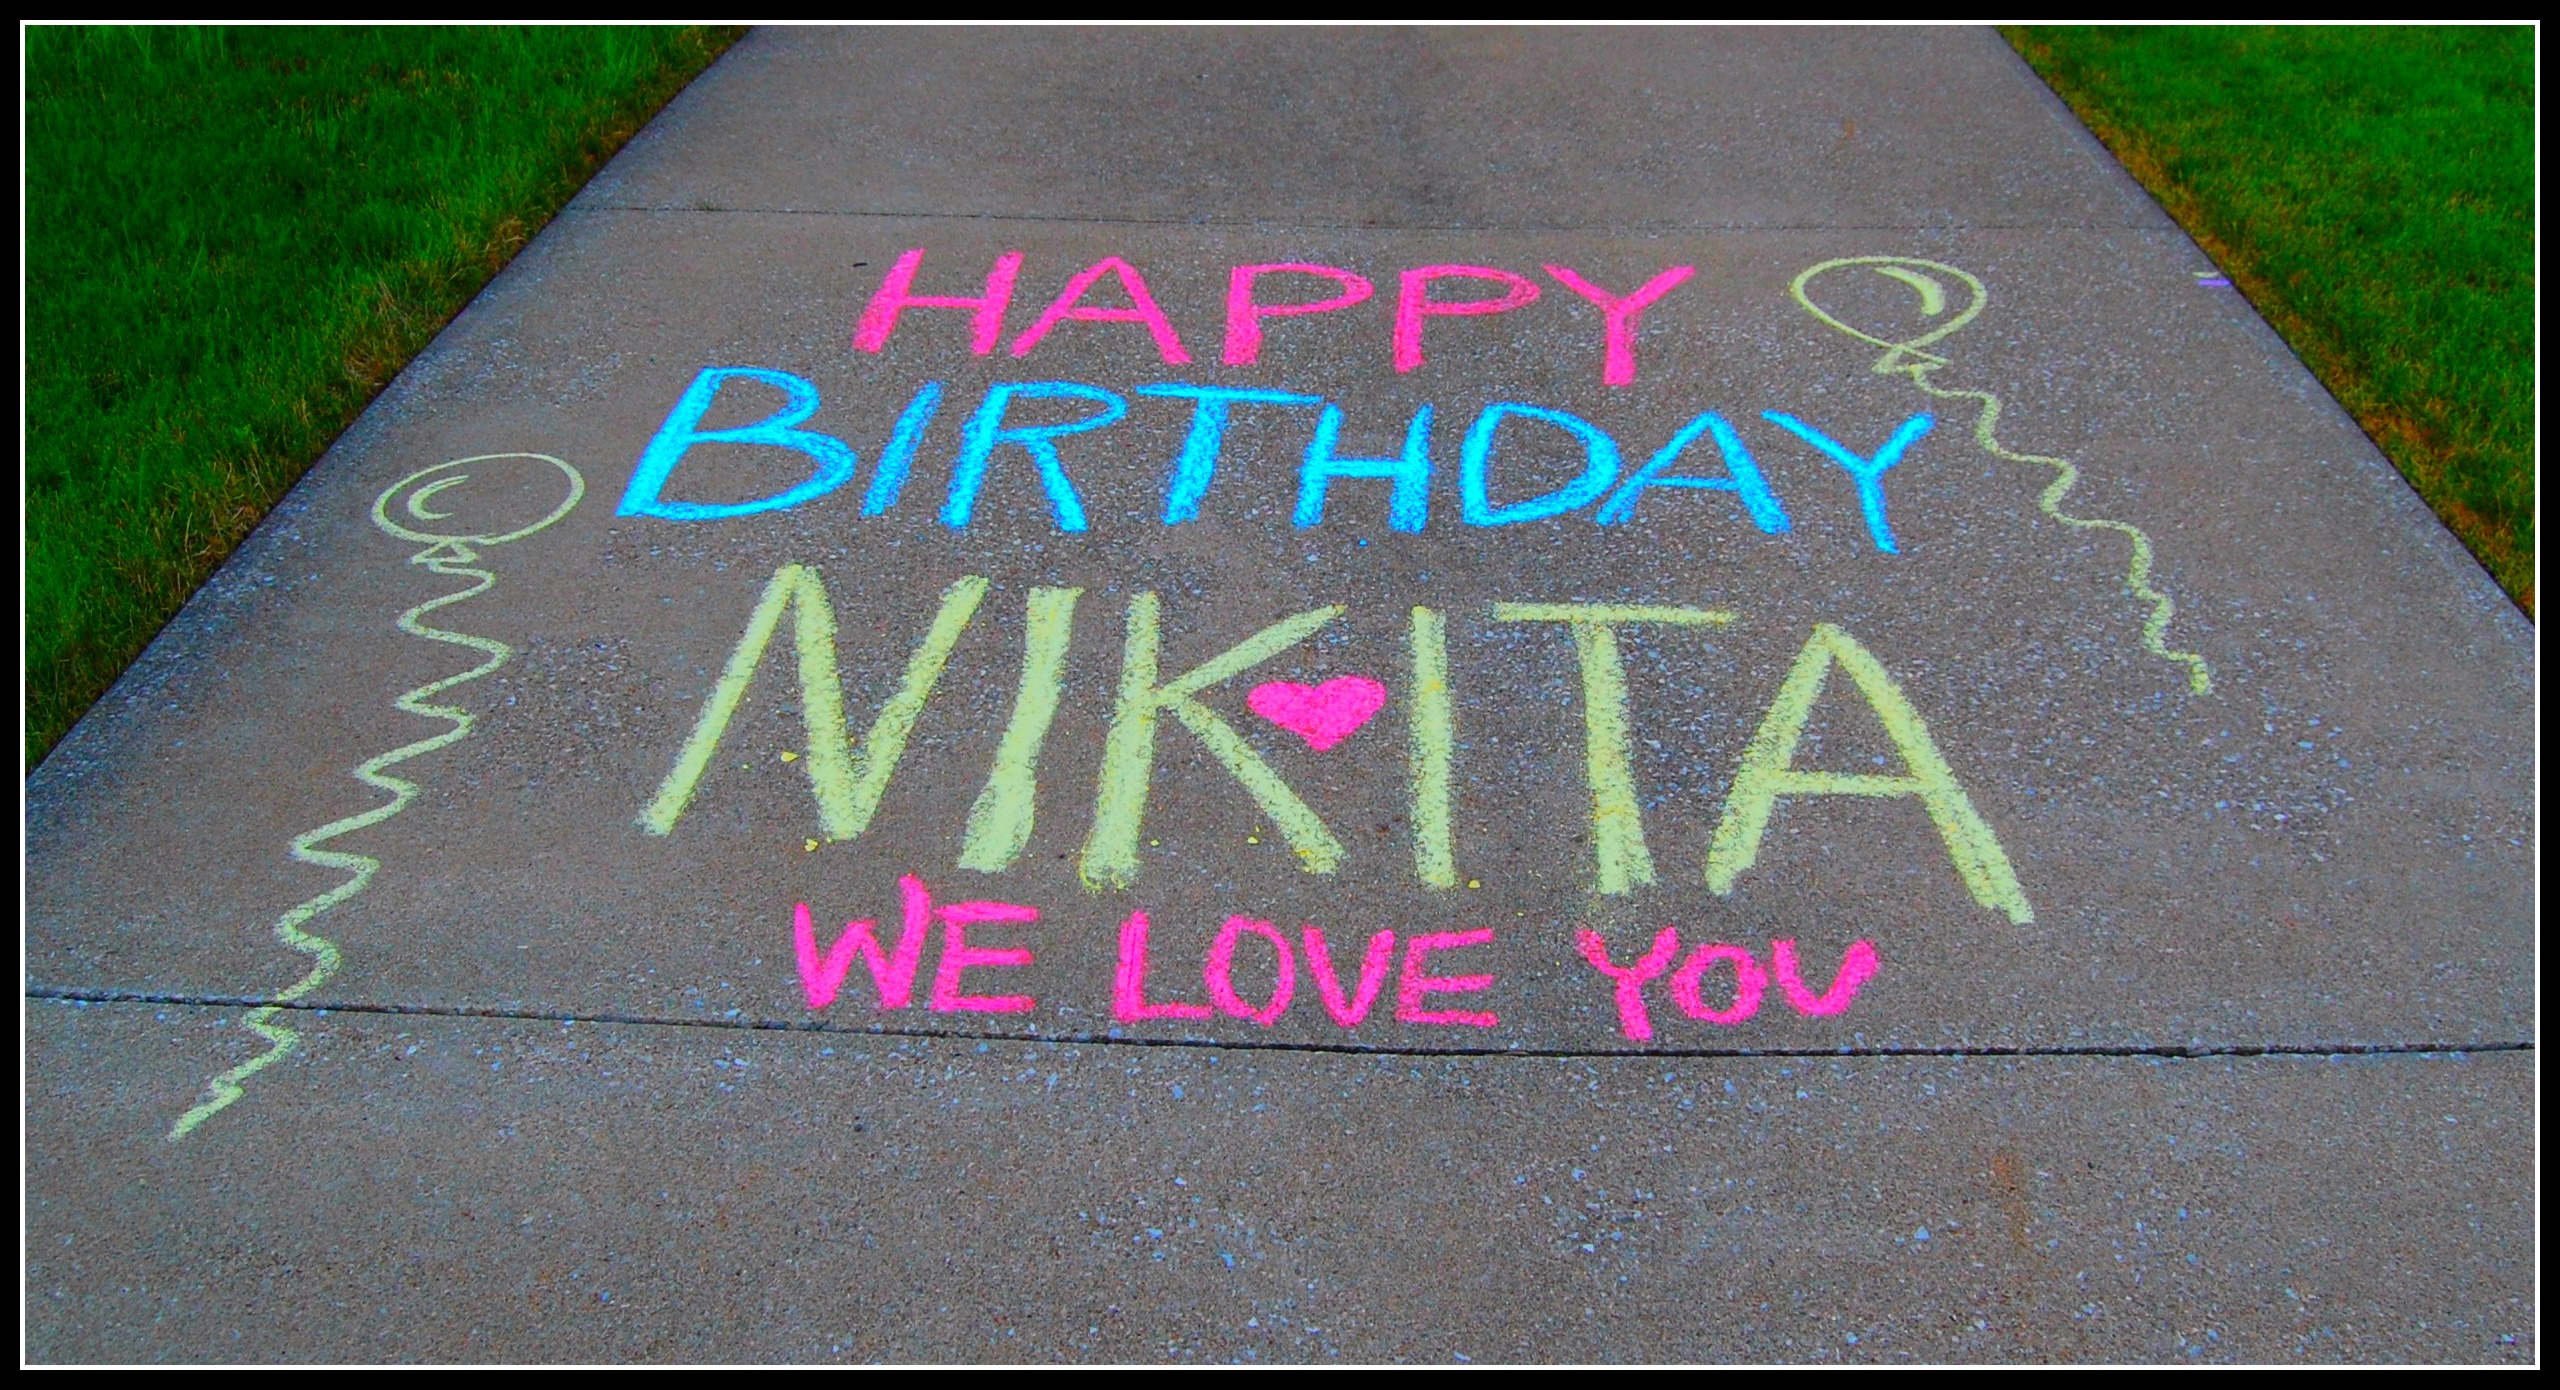 HAPPY
BIRTHDAY
NIKITA
WE LOVE YOU